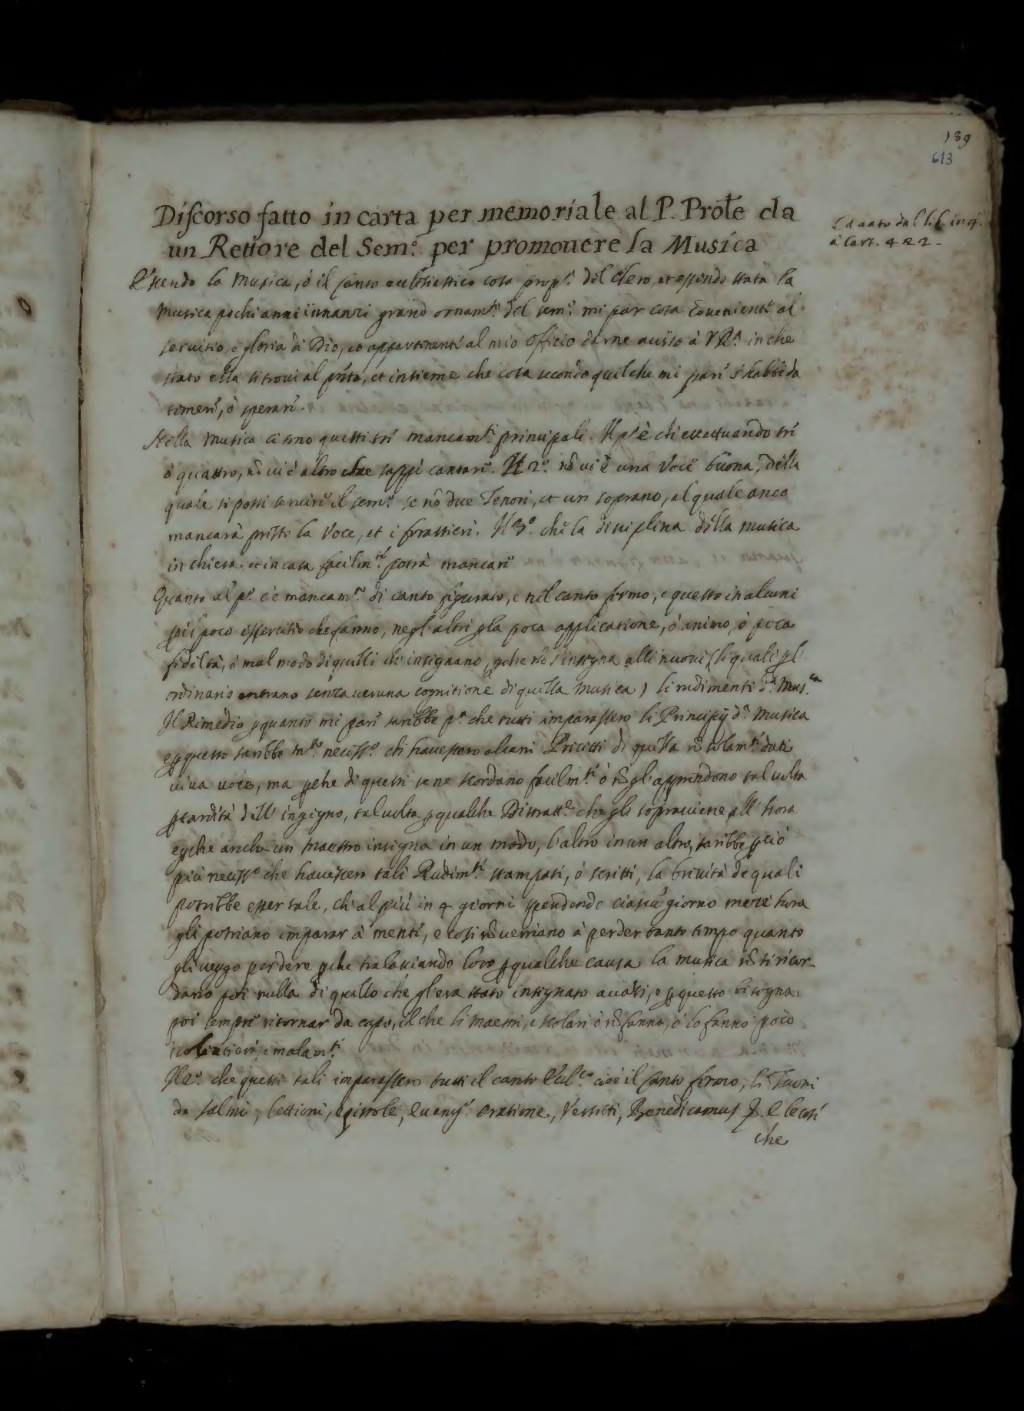 139
613
Discorso fatto in carta per memoriale al P. Prõle da
un Rettore del Sem.º per promouere la Musica
Cauato dal lib. in f.
à Cart. 422.
Essendo la Musica, ò il canto ecclesiastico cosa prop.ª del Clero, et essendo stata la
Musica pochi anni innanzi grand ornam.to del sem.º mi par cosa cõueniente al
seruitio, e gloria di Dio, et appartenente al mio Officio darne auiso à V.R.ª in che
stato ella si troui al pñte, et insieme che cosa secondo quel che mi pare s'habbi da
temere, ò sperare.
Nella Musica ci sono questi tre mancam.ti principali. Il p.º è che eccettuando tre
ò quattro, nõ ui è altro che sappi cantare. Il 2.º nõ ui è una Voce buona, della
quale si possi seruire il sem.º se nõ due Tenori, et un soprano, al quale anco
mancarà presto la Voce, et i forastieri. Il 3.º che la disciplina della musica
in chiesa, et in casa facilm.te potrà mancare
Quanto al p.º c'è mancam.to di canto figurato, e nel canto fermo, e questo in alcuni
poco essercitio che fanno, negl'altri poca applicatione, ò animo, ò poca
fideltà, ò mal modo di quelli che insegnano, pche nõ s'insegna alli nuoui (li quali pl
ordinario entrano senza ueruna cognitione di quella Musica) li rudimenti d.ª Mus.ca
Il Rimedio p quanto mi pare sarebbe p.º che tutti imparassero li Principij d.ª Musica
e p questo sarebbe necess.º che hauessero alcuni Precetti di quella nõ solam.te dati
uiua uoce, ma pche di questi se ne scordano facilm.te ò nõ gl'apprendono tal uolta
p tardità dell'ingegno, tal uolta p qualche Distratt.e che gli soprauiene all'hora
e pche anche un maestro insegna in un modo, l'altro in un altro, sarebbe p ciò
più necess.º che hauessero tali Rudim.ti stampati, ò scritti, la breuità de quali
potrebbe esser tale, ch'al più in 4 giorni spendendo ciascũ giorno mezz'hora
gli potriano imparar à mente, e così nõ uerriano à perder tanto tempo quanto
gli ueggo perdere pche tralasciando loro p qualche causa la musica nõ si ricor-
dano poi nulla di quello che gl'era stato insegnato auanti, e p questo bisogna
poi sempre ritornar da capo, il che li maestri, e scolari ò nõ fanno, ò lo fanno poco
uolentieri, e malam.te
Il 2.º che questi tali imparassero tutti il canto Eccl.co cioè il canto fermo, li Tuoni
de salmi, lettioni, epistole, euang. oratione, Versetti, Benedicamus &. E le cose
che